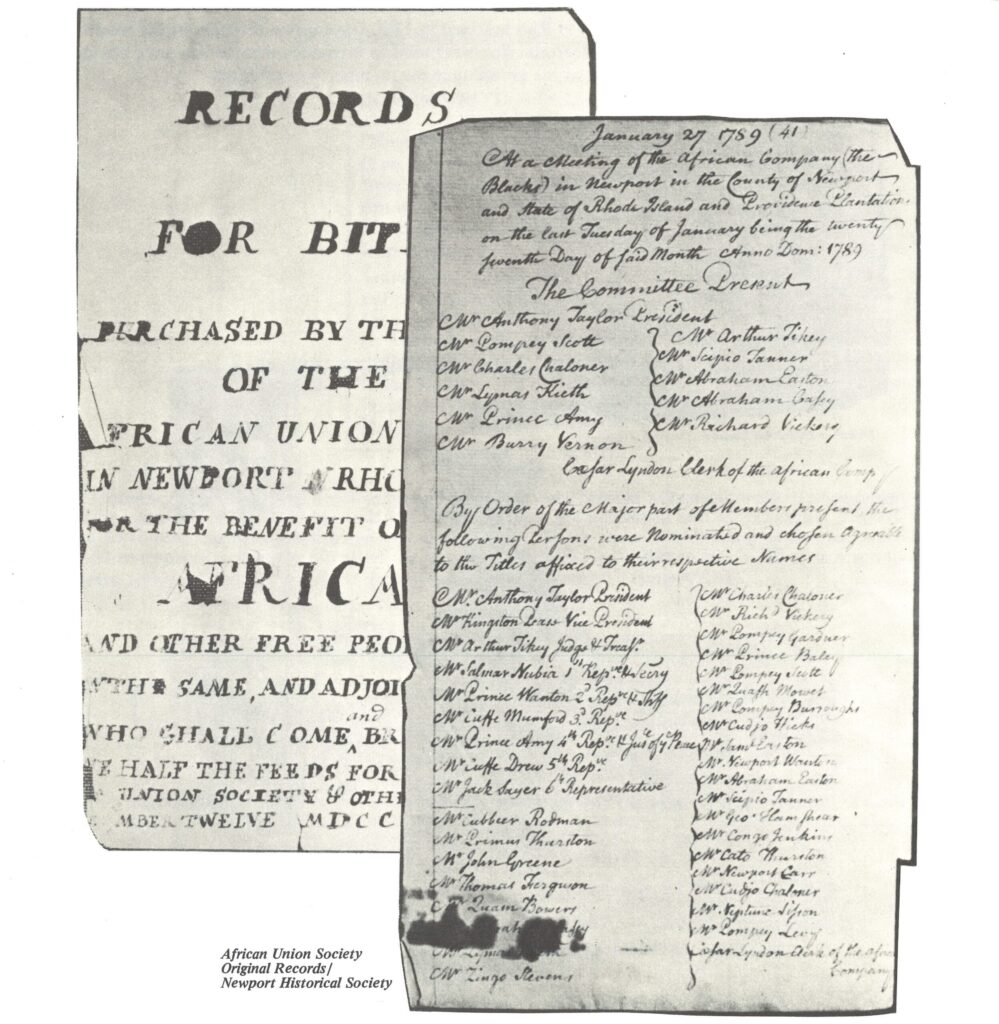 RECORDS
FOR BIT
PURCHASED BY TH
OF THE
FRICAN UNION
IN NEWPORT N RHO
FOR THE BENEFIT O
AFRICA
AND OTHER FREE PEO
N THE SAME, AND ADJOI
and
WHO SHALL COME, BR
E HALF THE FEEDS FOR
UNION SOCIETY & OTH
MBER TWELVE MDCC
January 27 1789 (41)
At a Meeting of the African Company (the
Blacks) in Newport in the County of Newport
and State of Rhode Island and Providence Plantation
on the last Tuesday of January being the twenty
seventh Day of said Month Anno Dom: 1789
The Committee Present
Mr Anthony Taylor President
Mr Pompey Scott
Mr Charles Chaloner
Mr Lymas Kieth
Mr Prince Amy
Mr Burry Vernon
Mr Arthur Tikey
Mr Scipio Tanner
Mr Abraham Easton
Mr Abraham Casey
Mr Richard Vickery
Cæsar Lyndon Clerk of the African Comp
By Order of the Major part of Members present the
following Persons were Nominated and chosen Agreeable
to the Titles affixed to their respective Names
Mr Anthony Taylor President
Mr Kingston Pease Vice President
Mr Arthur Tikey Judge & Treasr
Mr Salmar Nubia 1st Repve & Secry
Mr Prince Wanton 2d Repve &
Mr Cuffe Mumford 3d Repve
Mr Prince Amy 4th Repve & Juste of ye Peace
Mr Cuffe Drew 5th Repve
Mr Jack Sayer 6t Representative
Mr Cubbeer Rodman
Mr Primus Thurston
Mr John Greene
Mr Thomas Ferguson
Mr Quam Bowers
Mr Lymas
Mr Zingo Stevens
Mr Charles Chaloner
Mr Richd Vickery
Mr Pompey Gardner
Mr Prince Baley
Mr Pompey Scott
Mr Quash Mowet
Mr Pompey Burroughs
Mr Cudjo Hicks
Mr Saml Easton
Mr Newport Wanton
Mr Abraham Easton
Mr Scipio Tanner
Mr Geo: Hamshear
Mr Congo Jenkins
Mr Cato Thurston
Mr Newport Carr
Mr Cudjo Chaloner
Mr Neptune Sisson
Mr Pompey Levy
Cæsar Lyndon Clerk of the Afric
Company
African Union Society
Original Records/
Newport Historical Society